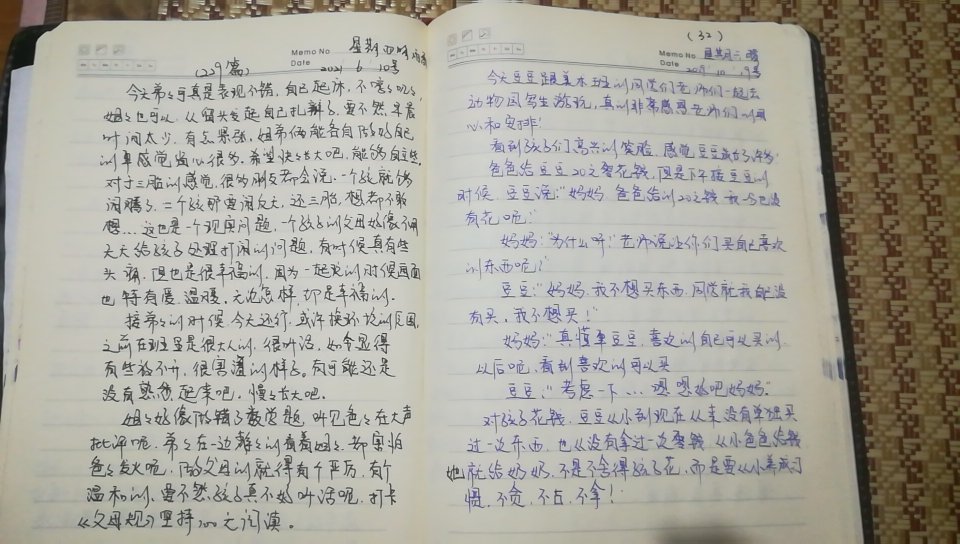 Memo No
星期四 晴
Date
(229篇) 2021 6 10号
今天弟弟可真是表现不错，自己起床，不哼不吭，
姐姐也可以，从留头发起自己扎辫子，要不然早晨
时间太少，有点紧张，姐弟俩能各自做好自己
的事感觉省心很多，希望快快长大吧，能够自立些。
对于三胎的感觉，很多朋友都会说，一个孩就够
闹腾了，二个孩那要闹翻天，还三胎，想都不敢
想…这也是一个现实问题，一个孩子的父母好像不用
天天给孩子处理打闹的问题，有时候真有些
头痛，但也是很幸福的，因为一起玩的时候画面
也特有爱，温暖，无论怎样，都是幸福的。
接弟弟的时候，今天还行，或许换环境的原因，
之前在班显是很大人的，很听话，如今显得
有些放不开，很害羞的样子。有可能还是
没有熟悉起来吧，慢慢长大吧。
姐姐好像做错了数学题，听见爸爸在大声
批评呢，弟弟在一边静静的看着姐姐，却害怕
爸爸发火呢，做父母的就得有个严厉，有个
温和的，要不然孩子真不好听话呢，打卡
《父母规》坚持200天阅读。
(32)
Memo No 星期六 晴
Date 2019 10 19号
今天豆豆跟美术班的同学们老师们一起去
动物园写生游玩，真的非常感恩老师们的用
心和安排！
看到孩子们高兴的笑脸，感觉豆豆成长了许多！
爸爸给豆豆20元零花钱，但是下午接豆豆的
时候，豆豆说：“妈妈，爸爸给的20元钱我一分也没
有花呢！”
妈妈：“为什么呀！老师说让你们买自己喜欢
的东西呢？”
豆豆：“妈妈，我不想买东西，同学就我自己没
有买，我不想买！”
妈妈：“真懂事豆豆，喜欢的自己可以买的，
以后呢，看到喜欢的可以买
豆豆：“考虑一下…嗯嗯好吧妈妈”
对孩子花钱，豆豆从小到现在从来没有单独买
过一次东西，也从没有拿过一次零钱，从小爸爸给钱
她就给奶奶，不是不舍得孩子花，而是要从小养成习
惯，不贪，不占，不拿！